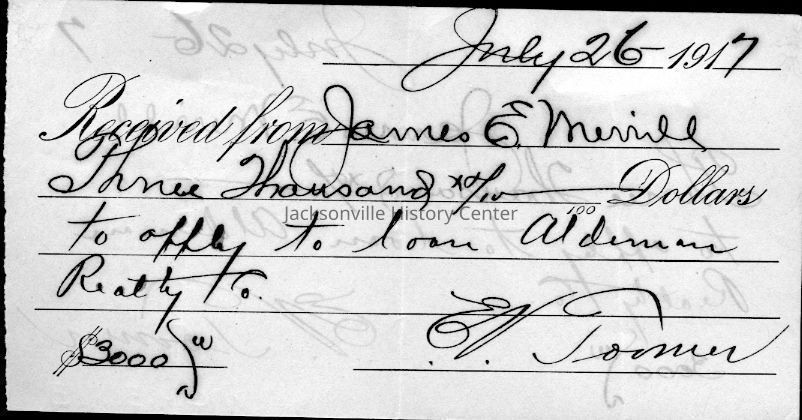 July 26 1917
Received from James E. Merrill
Three Thousand xx/100 Dollars
Jacksonville History Center
100
to apply to loan Alderman
Realty Co.
$3000
E.V. Toomer